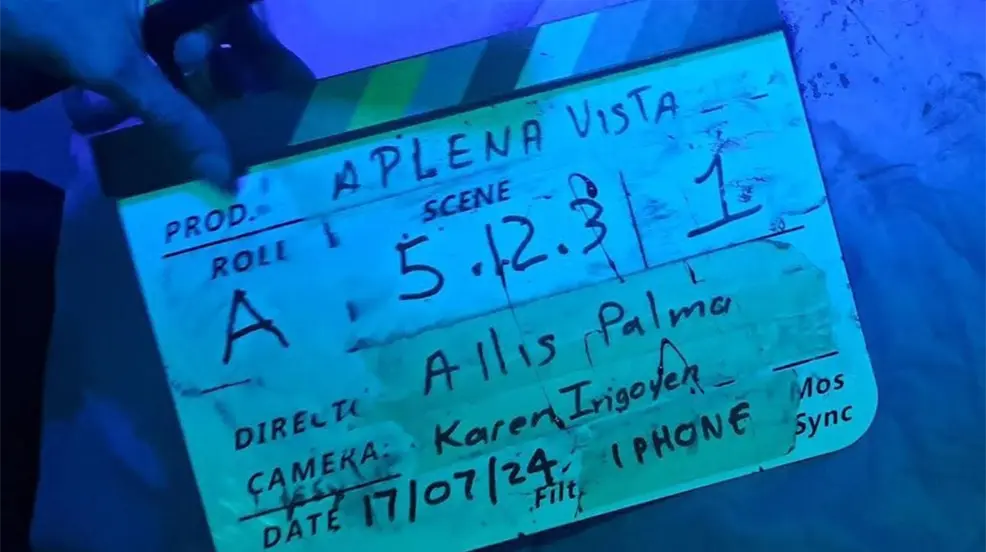 PROD. APLENA VISTA
ROLL SCENE
A 5.12.3 1
DIRECT Allis Palma
CAMERA: Karen Irigoyen
DATE 17/07/24 Filt. IPHONE
Mos
Sync